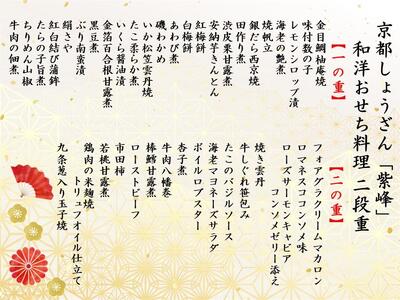 京都しょうざん「紫峰」
和洋おせち料理 二段重
【一の重】
金目鯛柚庵焼
味付数の子
レモンシロップ漬
海老の艶煮
焼帆立
銀だら西京焼
田作り煮
渋皮栗甘露煮
安納芋きんとん
紅梅餅
白梅餅
あわび煮
磯わかめ
いか松笠雲丹焼
たこ柔らか煮
いくら醤油漬
金箔百合根甘露煮
黒豆煮
ぶり南蛮漬
絹さや
紅白結び蒲鉾
たらの子旨煮
ちりめん山椒
牛肉の佃煮
【二の重】
フォアグラクリームマカロン
ロマネスココンソメ味
ローズサーモンキャビア
コンソメゼリー添え
焼き雲丹
牛しぐれ笹包み
たこのバジルソース
海老マヨネーズサラダ
ボイルロブスター
杏子煮
牛肉八幡巻
棒鱈甘露煮
ローストビーフ
市田柿
若桃甘露煮
鶏肉の米麹焼
トリュフオイル仕立て
九条葱入り玉子焼